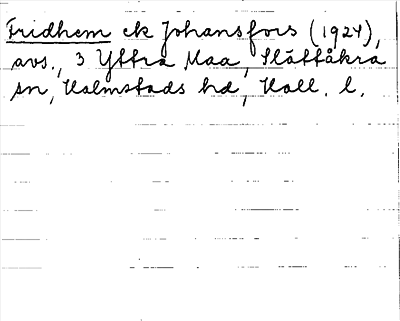 Fridhem ek Johansfors (1924),
avs., 3 Yttra Maa, Slättåkra
sn, Halmstads hd, Hall. l.